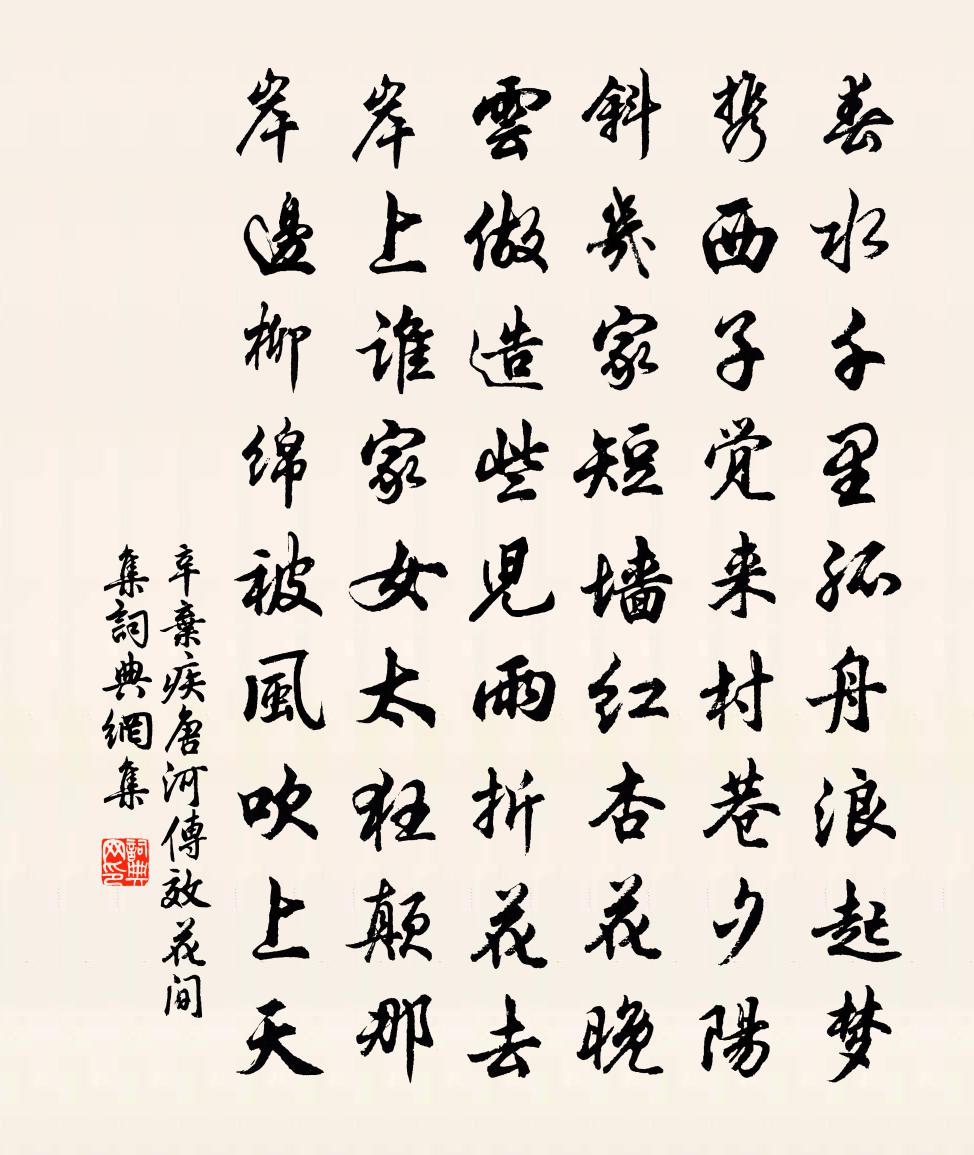 春水千里孤舟浪起梦
携西子觉来村巷夕陽
斜幾家短墙红杏花晚
雲做造些児雨折花去
岸上谁家女太狂颠那
岸邊柳绵被風吹上天
辛棄疾唐河傳效花间
集詞典網集
詞典网印